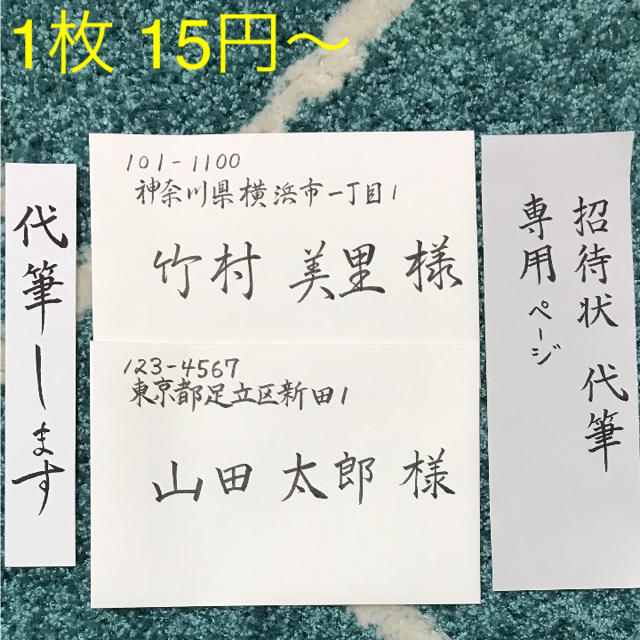 1枚 15円〜
代筆します
101-1100
神奈川県横浜市一丁目1
竹村 美里 様
123-4567
東京都足立区新田1
山田 太郎 様
招待状 代筆
専用ページ